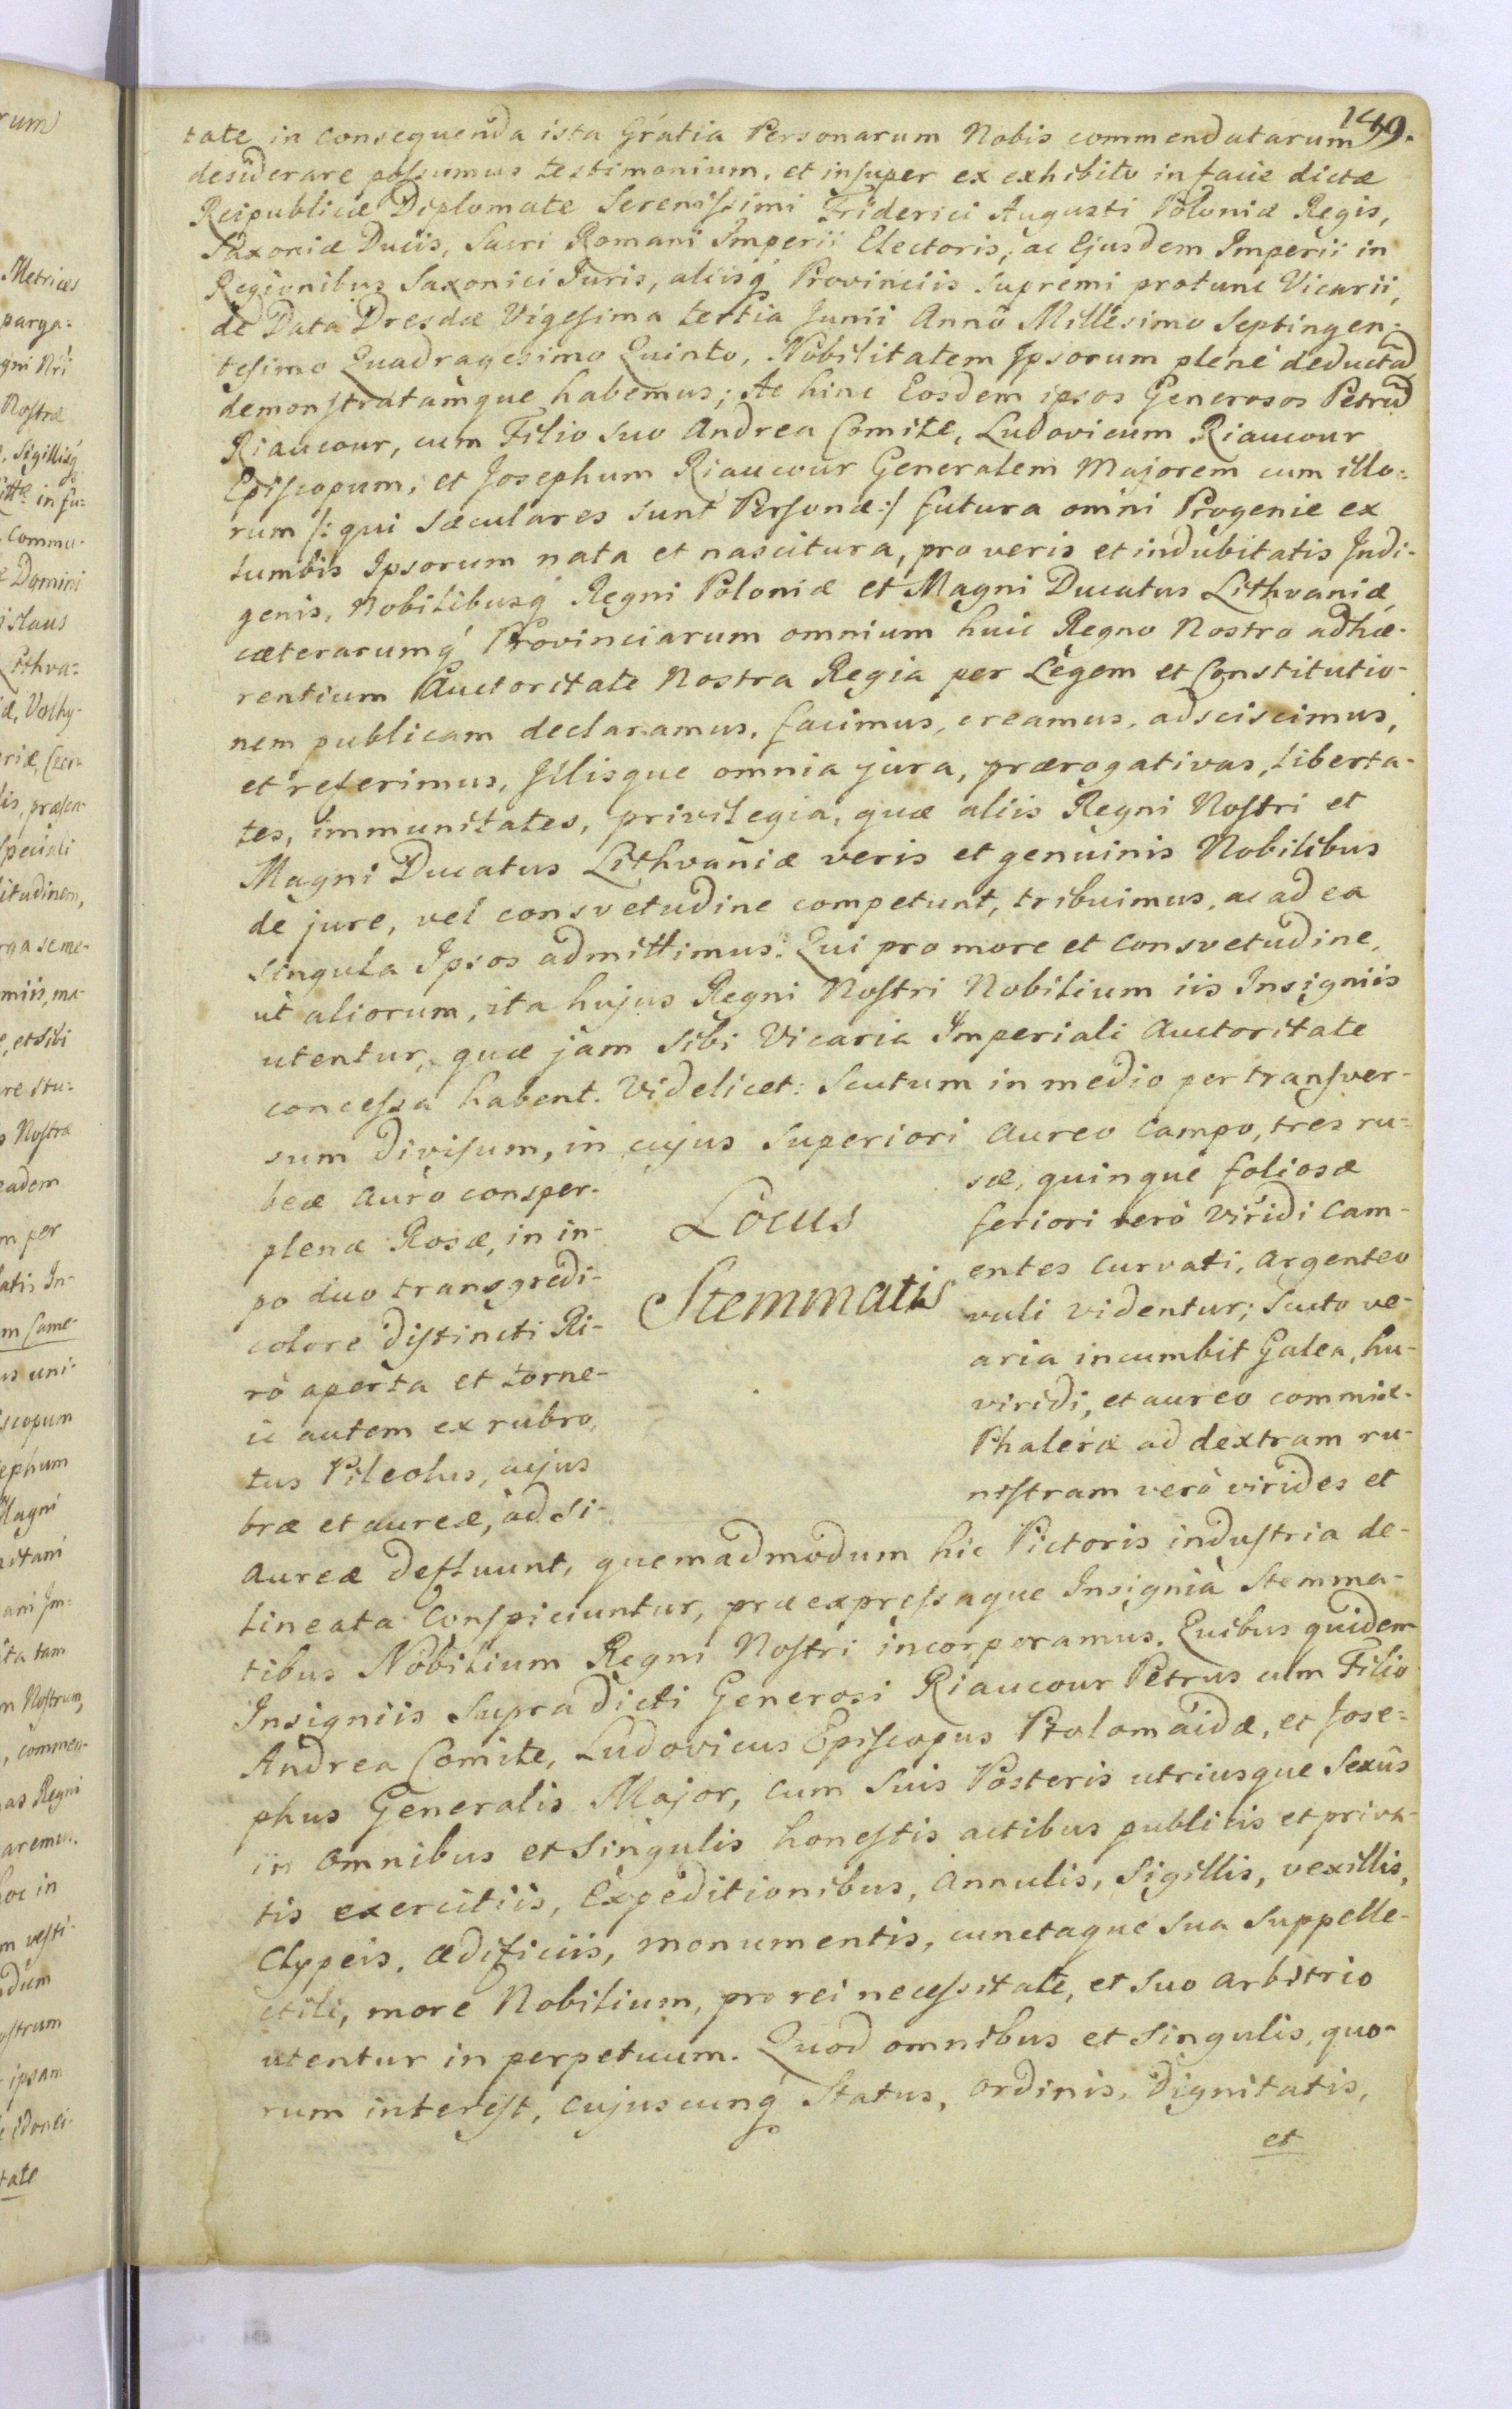 149.
tate in consequenda ista Gratia Personarum Nobis commendatarum
desiderare possumus testimonium, et insuper ex exhibito in facie dictæ
Reipublicæ Diplomate Serenissimi Friderici Augusti Poloniæ Regis,
Saxoniæ Ducis, Sacri Romani Imperii Electoris, ac Ejusdem Imperii in
Regionibus Saxonici Juris, aliisq́ Provinciis Supremi protunc Vicarii,
de Data Dresdæ Vigesima tertia Junii Annô Millesimo Septingen-
tesimo Quadragesimo Quinto, Nobilitatem Ipsorum plenè deductã
demonstratamque habemus; Ac hinc Eosdem ipsos Generosos Petrũ
Riaucour, cum Filio suo Andrea Comite, Ludovicum Riaucour
Episcopum, et Josephum Riaucour Generalem Majorem cum illo-
rum /: qui sæculares sunt Personæ :/ futura omni Progenie ex
lumbis Ipsorum nata et nascitura, pro veris et indubitatis Indi-
genis, Nobilibusq́ Regni Poloniæ et Magni Ducatus Lithvaniæ,
cæterarumq́ Provinciarum omnium huic Regno Nostro adhæ-
rentium Auctoritate Nostra Regia per Legem et Constitutio-
nem publicam declaramus, facimus, creamus, adsciscimus,
et referimus, Illisque omnia jura, prærogativas, liberta-
tes, immunitates, privilegia, quæ aliis Regni Nostri et
Magni Ducatus Lithvaniæ veris et genuinis Nobilibus
de jure, vel consvetudine competunt, tribuimus, ac ad ea
singula Ipsos admittimus. Qui pro more et consvetudine,
ut aliorum, ita hujus Regni Nostri Nobilium iis Insigniis
utentur, quæ jam sibi Vicaria Imperiali Auctoritate
concessa habent. Videlicet: Scutum in medio per transver-
sum divisum, in cujus superiori aureo Campo, tres ru-
beæ auro consper- sæ, quinque foliosæ
plenæ Rosæ, in in- feriori verò viridi Cam-
po duo transgredi- entes curvati, argenteo
colore distincti Ri- vuli videntur; Scuto ve-
rò aperta et torne- aria incumbit Galea, hu-
ic autem ex rubro, viridi, et aureo commix-
tus Pileolus, cujus Phaleræ ad dextram ru-
bræ et aureæ, ad si- nistram verò virides et
Locus
Stemmatis
aureæ defluunt, quemadmodum hic Pictoris industria de-
lineata Conspiciuntur, præexpressaque Insignia Stemma-
tibus Nobilium Regni Nostri incorporamus. Quibus quidem
Insigniis supradicti Generosi Riaucour Petrus cum Filio
Andrea Comite, Ludovicus Episcopus Ptolomaidæ, et Jose-
phus Generalis Major, cum suis Posteris utriusque Sexûs
in omnibus et singulis honestis actibus publicis et priva-
tis exercitiis, Expeditionibus, Annulis, Sigillis, vexillis,
Clypeis, ædificiis, monumentis, cunctaque sua suppelle-
ctili, more Nobilium, pro rei necessitate, et suo arbitrio
utentur in perpetuum. Quod omnibus et singulis, quo-
rum interest, cujuscunq́ Status, ordinis, Dignitatis,
et